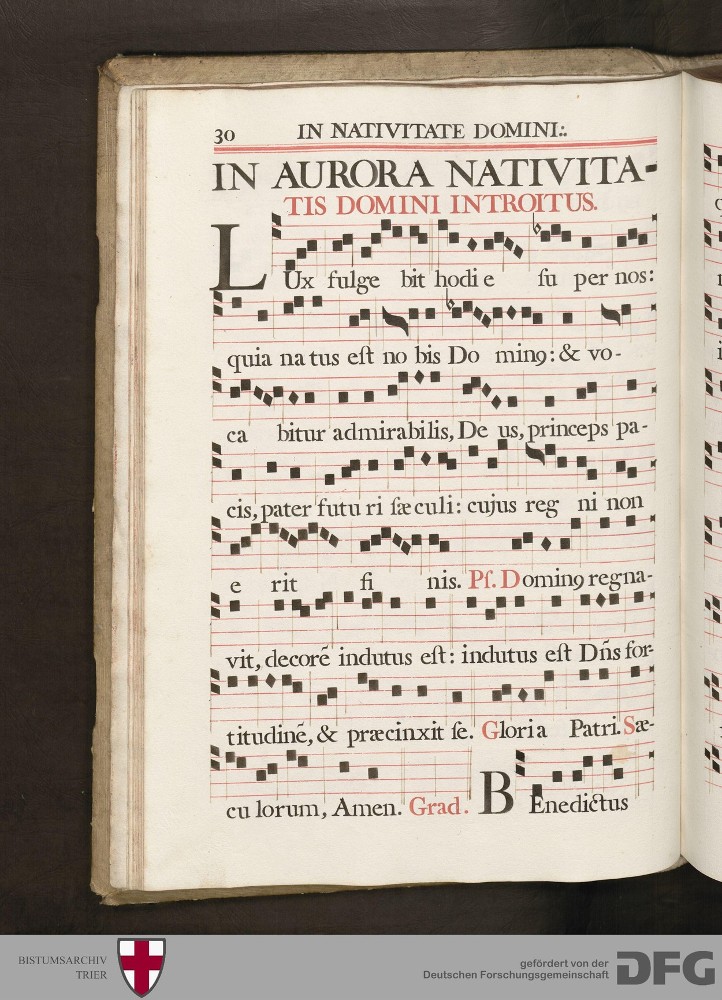 30 IN NATIVITATE DOMINI:.
IN AURORA NATIVITA-
TIS DOMINI INTROITUS.
LUx fulge bit hodi e su per nos:
quia na tus eſt no bis Do minꝯ: & vo-
ca bitur admirabilis, De us, princeps pa-
cis, pater futu ri ſæ culi: cujus reg ni non
e rit fi nis. Pſ. Dominꝯ regna-
vit, decorē indutus eſt: indutus eſt Dñs for-
titudinē, & præcinxit ſe. Gloria Patri. Sæ-
cu lorum, Amen. Grad. BEnedictus
BISTUMSARCHIV
TRIER
gefördert von der
Deutschen Forschungsgemeinschaft
DFG